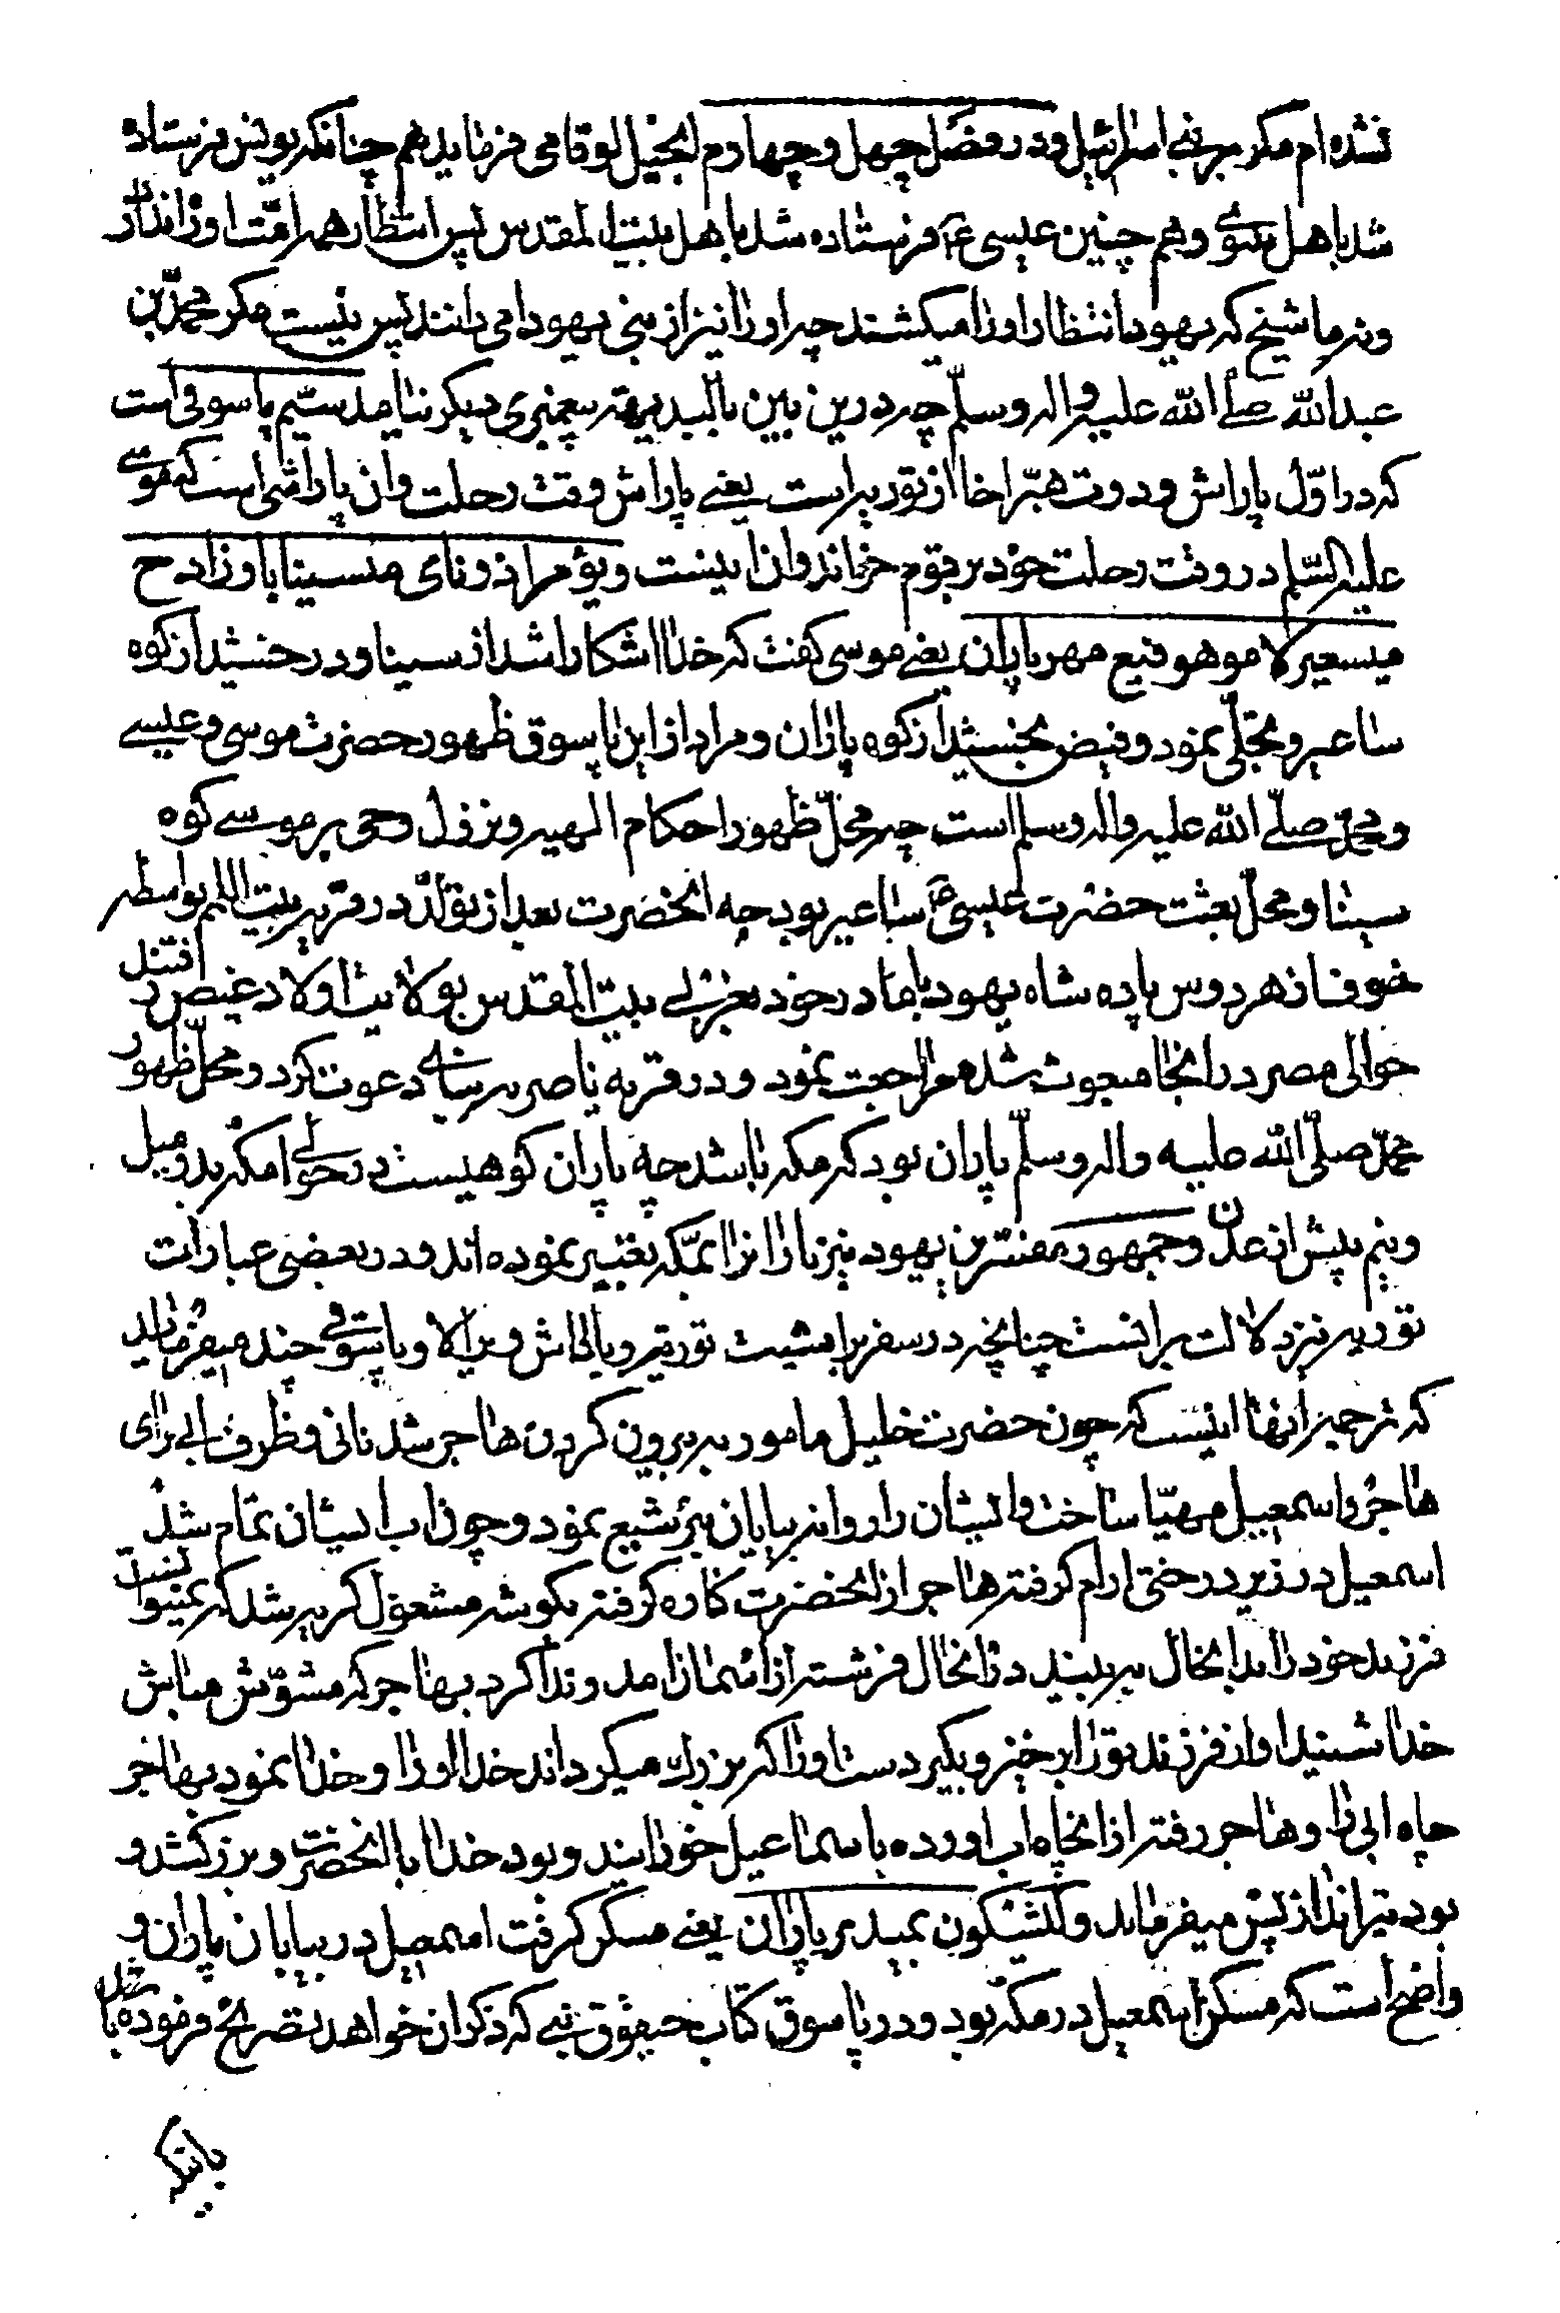 نشده ام مکر بر بنی اسرائیل و در فصل چهل و چهارم انجیل لوقا می فرماید هم چنانکه یونس فرستاده
شد باهل نینوی و هم چنین عیسی ع فرستاده شد باهل بیت المقدس پس انتظار همه امت او را ندارند
و نه ماشیخ که یهود انتظار او را میکشند چه او را نیز از بنی یهودا می دانند پس نیست مکر محمد بن
عبدالله صلی الله علیه و اله و سلم چه درین بین بالبدیهه پیغمبری دیکر نیامد سیم پاسوقی است
که در اول پاراش وزوت هبراخا از توریة است یعنی پاراش وقت رحلت و ان پاراشی است که موسی
علیه السلم در وقت رحلت خود بر قوم خواند و ان اینست ویومر اذونای مسینا با وزادح
میسعیر لامو هوفیع مهر پاران یعنی موسی کفت که خدا اشکارا شد از سینا و درخشید از کوه
ساعیر و تجلی نمود و فیض بخشید از کوه پاران و مراد از این پاسوق ظهور حضرت موسی و عیسی
و محمد صلی الله علیه و اله و سلم است چه محل ظهور احکام الهیه و نزول وحی بر موسی کوه
سینا و محل بعثت حضرت عیسی ع ساعیر بود چه انحضرت بعد از تولد در قریه بیت اللحم بواسطه
خوف از هردوس پاده شاه یهود با مادر خود بعزلی بیت المقدس بولایت اولاد عیص رفتند
حوالی مصر در انجا مبعوث شده مراجعت نمود و در قریه ناصریه رسانیه دعوت کرد و محل ظهور
محمد صلی الله علیه و اله و سلم پاران بود که مکه باشد چه پاران کوهیست در حوالی مکه بدو میل
و نیم پیش از عدن و جمهور مفسرین یهود نیز پاران را بمکه تعبیر نموده اند و در بعضی عبارات
توریه نیز دلالت بر انست چنانچه در سفر برابشیت توریه و پاراش ویرالا و پاسوقی چند میفرماید
که ترجمه انها اینست که چون حضرت خلیل مامور به بیرون کردن هاجر شد نانی و ظرف ابی برای
هاجر و اسمعیل مهیا ساخت و ایشان را روانه بیابان بئرشیع نمود و چون اب ایشان تمام شد
اسمعیل در زیر درختی ارام کرفته هاجر از انحضرت کناره کرفته بکوشه مشغول کریه شد که نمیتوانست
فرزند خود را بدانحال به بیند در انحال فرشته از اسمان امد و ندا کرد بهاجر که مشوش مباش
خدا شنید اواز فرزند تو را برخیز و بکیر دست او را که بزرك میکرداند خدا او را و خدا نمود بهاجر
چاه ابی را و هاجر رفته از انچاه اب اورده باسماعیل خورانید و بود خدا با انحضرت و بزرك شد و
بود تیرانداز پس میفرماید و یشیکون بمیدبر پاران یعنی مسکن کرفت اسمعیل در بیابان پاران و
واضح است که مسکن اسمعیل در مکه بود و در پاسوق کتاب حبقوق نبی که ذکر ان خواهد شد تصریح فرموده با
باینکه